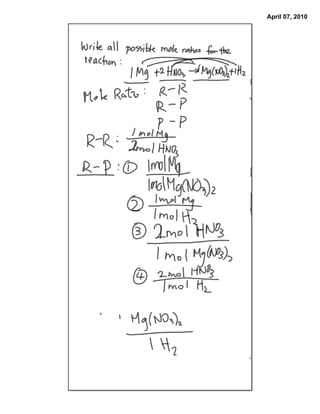 April 07, 2010
Write all possible mole ratios for the
reaction:
1Mg + 2HNO3 → Mg(NO3)2 + 1H2
Mole Ratio: R-R
R-P
P-P
R-R: 1 mol Mg
2mol HNO3
R-P: ① 1mol Mg
1mol Mg(NO3)2
② 1mol Mg
1mol H2
③ 2mol HNO3
1mol Mg(NO3)2
④ 2mol HNO3
1mol H2
1 Mg(NO3)2
1 H2